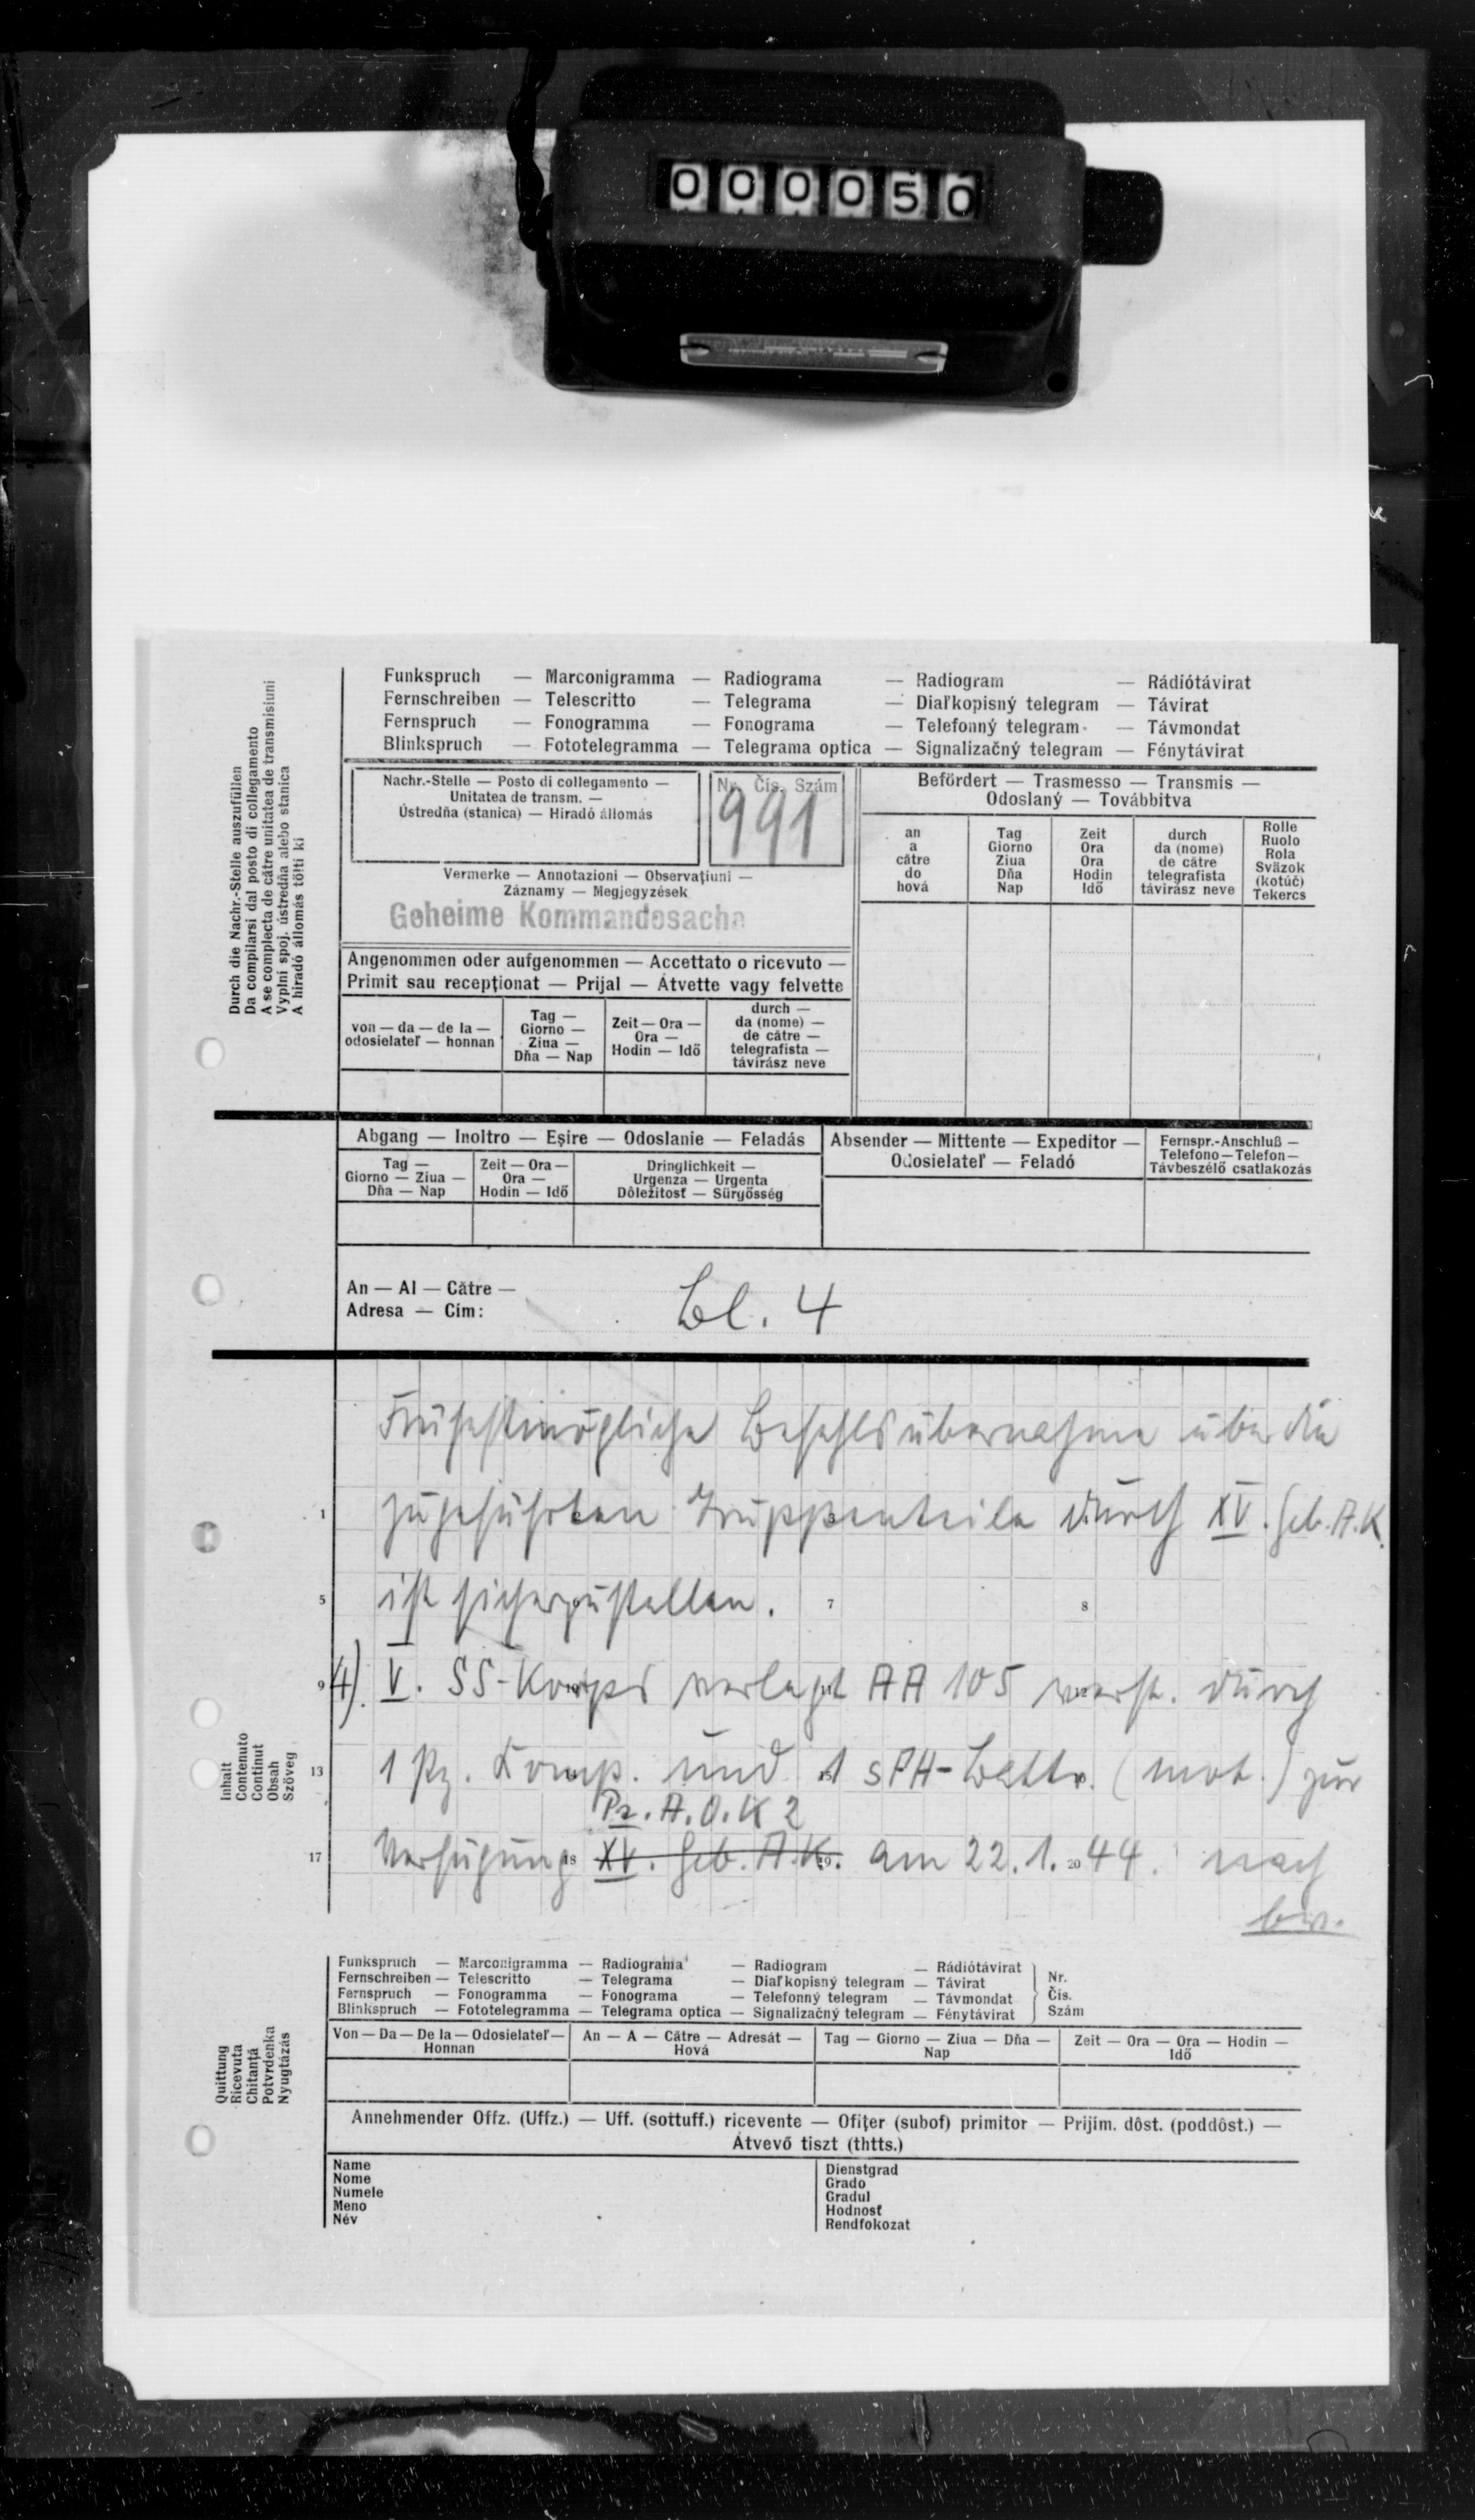 000050
Funkspruch — Marconigramma — Radiograma — Radiogram — Rádiótávirat
Fernschreiben — Telescritto — Telegrama — Diaľkopisný telegram — Távirat
Fernspruch — Fonogramma — Fonograma — Telefonný telegram — Távmondat
Blinkspruch — Fototelegramma — Telegrama optica — Signalizačný telegram — Fénytávirat
Durch die Nachr.-Stelle auszufüllen
Da compilarsi dal posto di collegamento
A se complecta de către unitatea de transmisiuni
Vyplní spoj. ústredňa alebo stanica
A hiradó állomás tölti ki
Nachr.-Stelle — Posto di collegamento —
Unitatea de transm. —
Ústredňa (stanica) — Hiradó állomás
Nr. Čís. Szám
991
Vermerke — Annotazioni — Observaţiuni —
Záznamy — Megjegyzések
Geheime Kommandosache
Befördert — Trasmesso — Transmis —
Odoslaný — Továbbitva
an
a
către
do
hová
Tag
Giorno
Ziua
Dňa
Nap
Zeit
Ora
Ora
Hodin
Idő
durch
da (nome)
de către
telegrafista
távirász neve
Rolle
Ruolo
Rola
Sväzok
(kotúč)
Tekercs
Angenommen oder aufgenommen — Accettato o ricevuto —
Primit sau recepţionat — Prijal — Átvette vagy felvette
von — da — de la —
odosielateľ — honnan
Tag —
Giorno —
Zina —
Dňa — Nap
Zeit — Ora —
Ora —
Hodin — Idő
durch —
da (nome) —
de către —
telegrafista —
távirász neve
Abgang — Inoltro — Eşire — Odoslanie — Feladás
Tag —
Giorno — Ziua —
Dňa — Nap
Zeit — Ora —
Ora —
Hodin — Idő
Dringlichkeit —
Urgenza — Urgenta
Dôležitosť — Sürgősség
Absender — Mittente — Expeditor —
Odosielateľ — Feladó
Fernspr.-Anschluß —
Telefono — Telefon —
Távbeszélő csatlakozás
An — Al — Către —
Adresa — Cím:
Bl. 4
Frühestmögliche Befehlsübernahme über die
1 zugeführten Truppenteile durch XV. Geb. A.K.
5 ist sicherzustellen. 7 8
9 4). V. SS-Korps verlegt AA 105 verst. durch
13 1 Pz. Komp. und 1 sFH-Battr. (mot.) zur
Pz. A.O.K 2
17 Verfügung 18 XV. Geb. A.K. am 22.1. 20 44. nach
Inhalt
Contenuto
Continut
Obsah
Szöveg
Funkspruch — Marconigramma — Radiograma — Radiogram — Rádiótávirat
Fernschreiben — Telescritto — Telegrama — Diaľkopisný telegram — Távirat
Fernspruch — Fonogramma — Fonograma — Telefonný telegram — Távmondat
Blinkspruch — Fototelegramma — Telegrama optica — Signalizačný telegram — Fénytávirat
Nr.
Čís.
Szám
Quittung
Ricevuta
Chitanţă
Potvrdenka
Nyugtázás
Von — Da — De la — Odosielateľ —
Honnan
An — A — Către — Adresát —
Hová
Tag — Giorno — Ziua — Dňa —
Nap
Zeit — Ora — Ora — Hodin —
Idő
Annehmender Offz. (Uffz.) — Uff. (sottuff.) ricevente — Ofiţer (subof) primitor — Prijím. dôst. (poddôst.) —
Átvevő tiszt (thtts.)
Name
Nome
Numele
Meno
Név
Dienstgrad
Grado
Gradul
Hodnosť
Rendfokozat